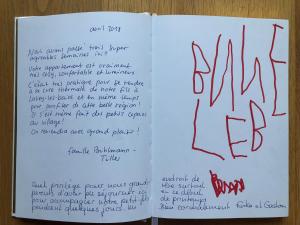 avril 2018
Nous avons passé trois super
agréables semaines ici!
Votre appartement est vraiment
très cosy, confortable et lumineux.
C'était très pratique pour se rendre
à la cure thermale de notre fils à
et en même temps
pour profiter de cette belle région!
Il s'est même fait des petits copains
au village!
On reviendra avec grand plaisir!
Famille
Quel privilège pour nous grand-
parents d'avoir pu séjourner ici
pour accompagner notre petit fils
pendant quelques jours. Un
BUNE
LEB
endroit de
rêve surtout
en ce début
de printemps
Bien cordialement et Gaston